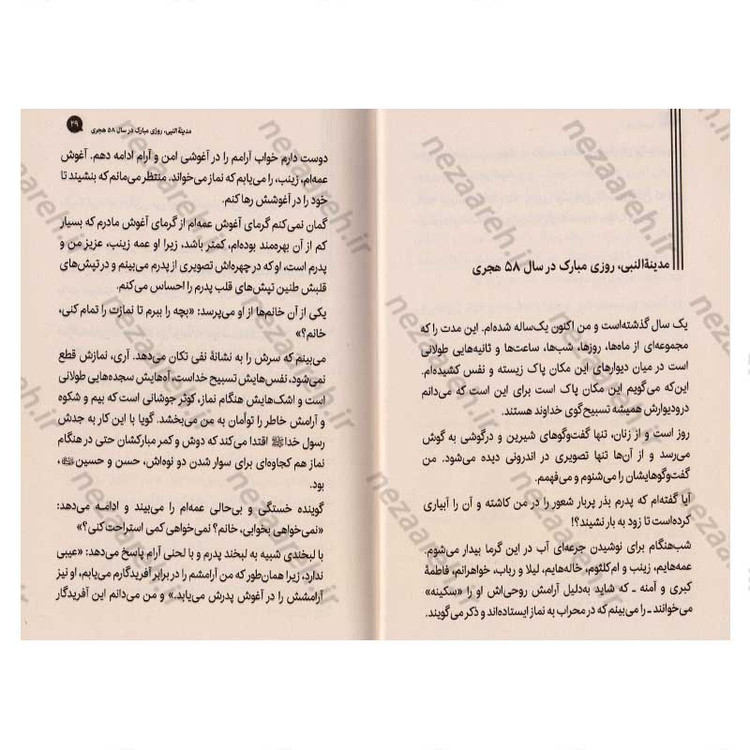 مدینة‌النبی، روزی مبارک در سال ۵۸ هجری
یک سال گذشته‌است و من اکنون یک‌ساله شده‌ام. این مدت را که
مجموعه‌ای از ماه‌ها، روزها، شب‌ها، ساعت‌ها و ثانیه‌هایی طولانی
است در میان دیوارهای این مکان پاک زیسته و نفس کشیده‌ام.
این‌که می‌گویم این مکان پاک است برای این است که می‌دانم
درودیوارش همیشه تسبیح‌گوی خداوند هستند.
روز است و از زنان، تنها گفت‌وگوهای شیرین و درگوشی به گوش
می‌رسد و از آن‌ها تنها تصویری در اندرونی دیده می‌شود. من
گفت‌وگوهایشان را می‌شنوم و می‌فهمم.
آیا گفته‌ام که پدرم بذر پربار شعور را در من کاشته و آن را آبیاری
کرده‌است تا زود به بار نشیند؟!
شب‌هنگام برای نوشیدن جرعه‌ای آب در این گرما بیدار می‌شوم.
عمه‌هایم، زینب و ام‌کلثوم، خاله‌هایم، لیلا و رباب، خواهرانم، فاطمهٔ
کبری و آمنه ـ که شاید به‌دلیل آرامش روحی‌اش او را «سکینه»
می‌خوانند ـ را می‌بینم که در محراب به نماز ایستاده‌اند و ذکر می‌گویند.
مدینة‌النبی، روزی مبارک در سال ۵۸ هجری ۲۹
دوست دارم خواب آرامم را در آغوشی امن و آرام ادامه دهم. آغوش
عمه‌ام، زینب، را می‌یابم که نماز می‌خواند. منتظر می‌مانم که بنشیند تا
خود را در آغوشش رها کنم.
گمان نمی‌کنم گرمای آغوش عمه‌ام از گرمای آغوش مادرم که بسیار
کم از آن بهره‌مند بوده‌ام، کمتر باشد، زیرا او عمه زینب، عزیز من و
پدرم است، او که در چهره‌اش تصویری از پدرم می‌بینم و در تپش‌های
قلبش طنین تپش‌های قلب پدرم را احساس می‌کنم.
یکی از آن خانم‌ها از او می‌پرسد: «بچه را ببرم تا نمازت را تمام کنی،
خانم؟»
می‌بینم که سرش را به نشانهٔ نفی تکان می‌دهد. آری، نمازش قطع
نمی‌شود، نفس‌هایش تسبیح خداست، آه‌هایش سجده‌هایی طولانی
است و اشک‌هایش هنگام نماز، کوثر جوشانی است که بیم و شکوه
و آرامش خاطر را توأمان به من می‌بخشد. گویا با این کار به جدش
رسول خدا ﷺ اقتدا می‌کند که دوش و کمر مبارکشان حتی در هنگام
نماز هم کجاوه‌ای برای سوار شدن دو نوه‌اش، حسن و حسین، ،
بود.
گوینده خستگی و بی‌حالی عمه‌ام را می‌بیند و ادامه می‌دهد:
«نمی‌خواهی بخوابی، خانم؟ نمی‌خواهی کمی استراحت کنی؟»
با لبخندی شبیه به لبخند پدرم و با لحنی آرام پاسخ می‌دهد: «عیبی
ندارد، زیرا همان‌طور که من آرامشم را در برابر آفریدگارم می‌یابم، او نیز
آرامشش را در آغوش پدرش می‌یابد.» و من می‌دانم این آفریدگار
nezaareh.ir